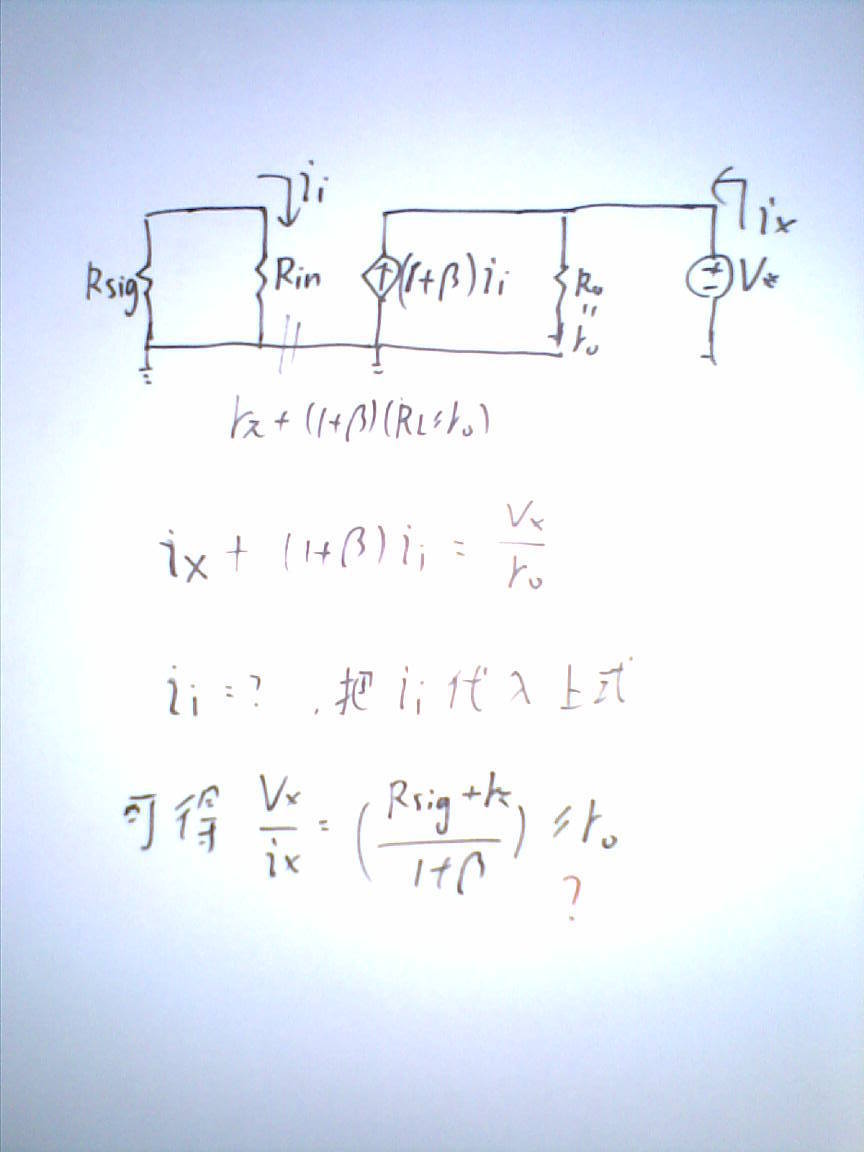 i_i i_x
Rsig Rin (1+β)i_i R_o V_x
=
r_o
r_π + (1+β)(R_L // r_o)
i_x + (1+β) i_i = V_x / r_o
i_i = ? , 把 i_i 代入上式
可得 V_x / i_x = ( (Rsig + r_π) / (1+β) ) // r_o
?